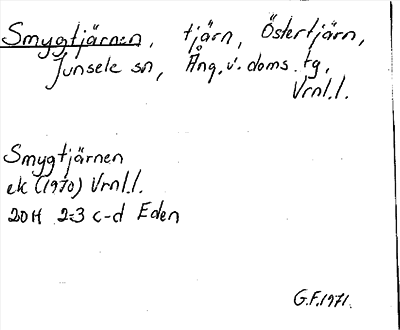 Smygtjärnen, tjärn, Östertjärn,
Junsele sn, Ång. v. doms. tg,
Vrnl.l.
Smygtjärnen
ek (1970) Vrnl.l.
20H 2-3 c-d Eden
G.F. 1971.